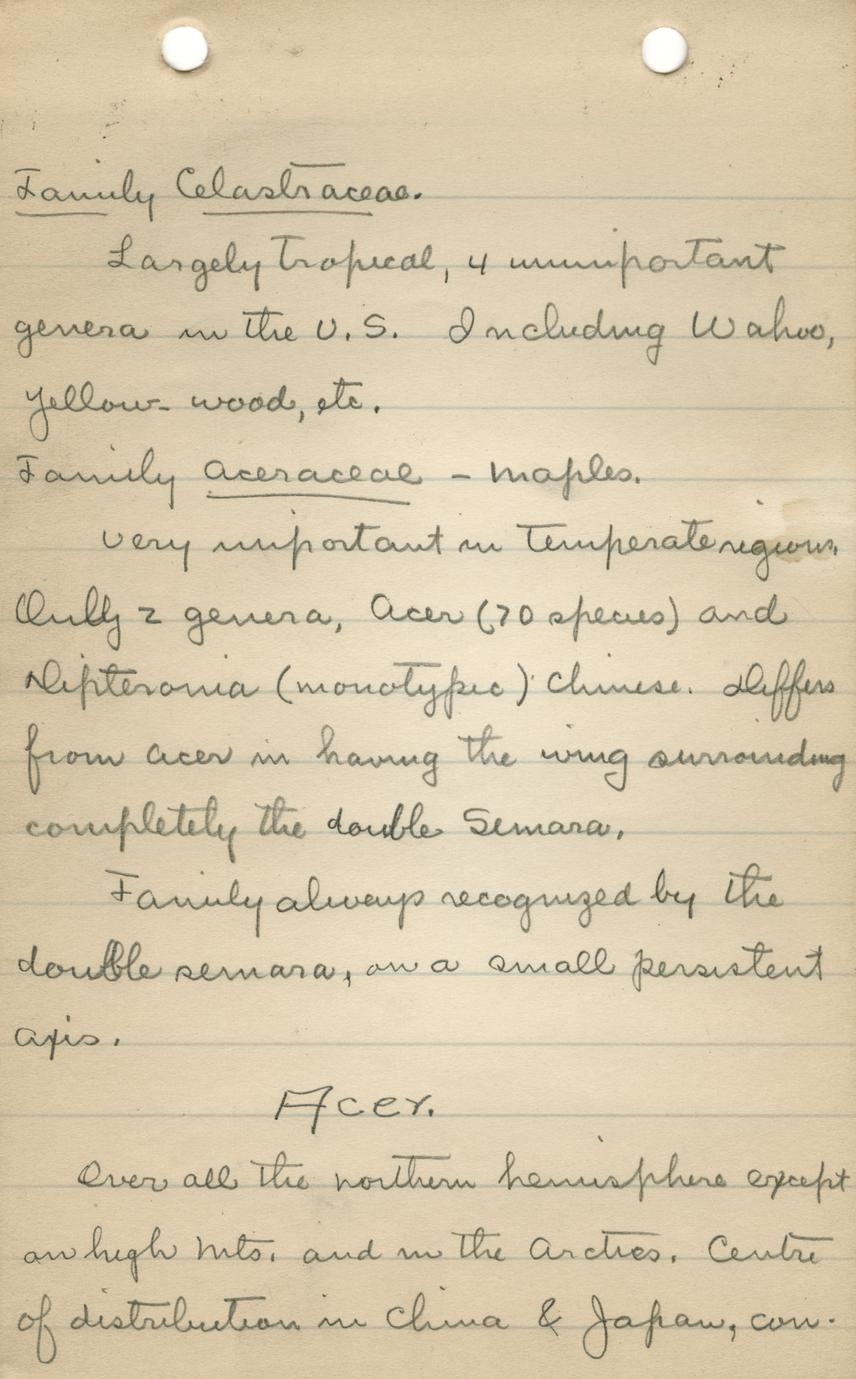 Family Celastraceae.
Largely tropical, 4 unimportant
genera in the U.S. Including Wahoo,
Yellow-wood, etc.
Family Aceraceae - Maples.
Very important in Temperate regions.
Only 2 genera, Acer (70 species) and
Dipteronia (monotypic) Chinese. Differs
from Acer in having the wing surrounding
completely the double Semara.
Family always recognized by the
double semara, on a small persistent
axis.
Acer.
Over all the northern hemisphere except
on high Mts. and in the Arctics. Centre
of distribution in China & Japan, con-